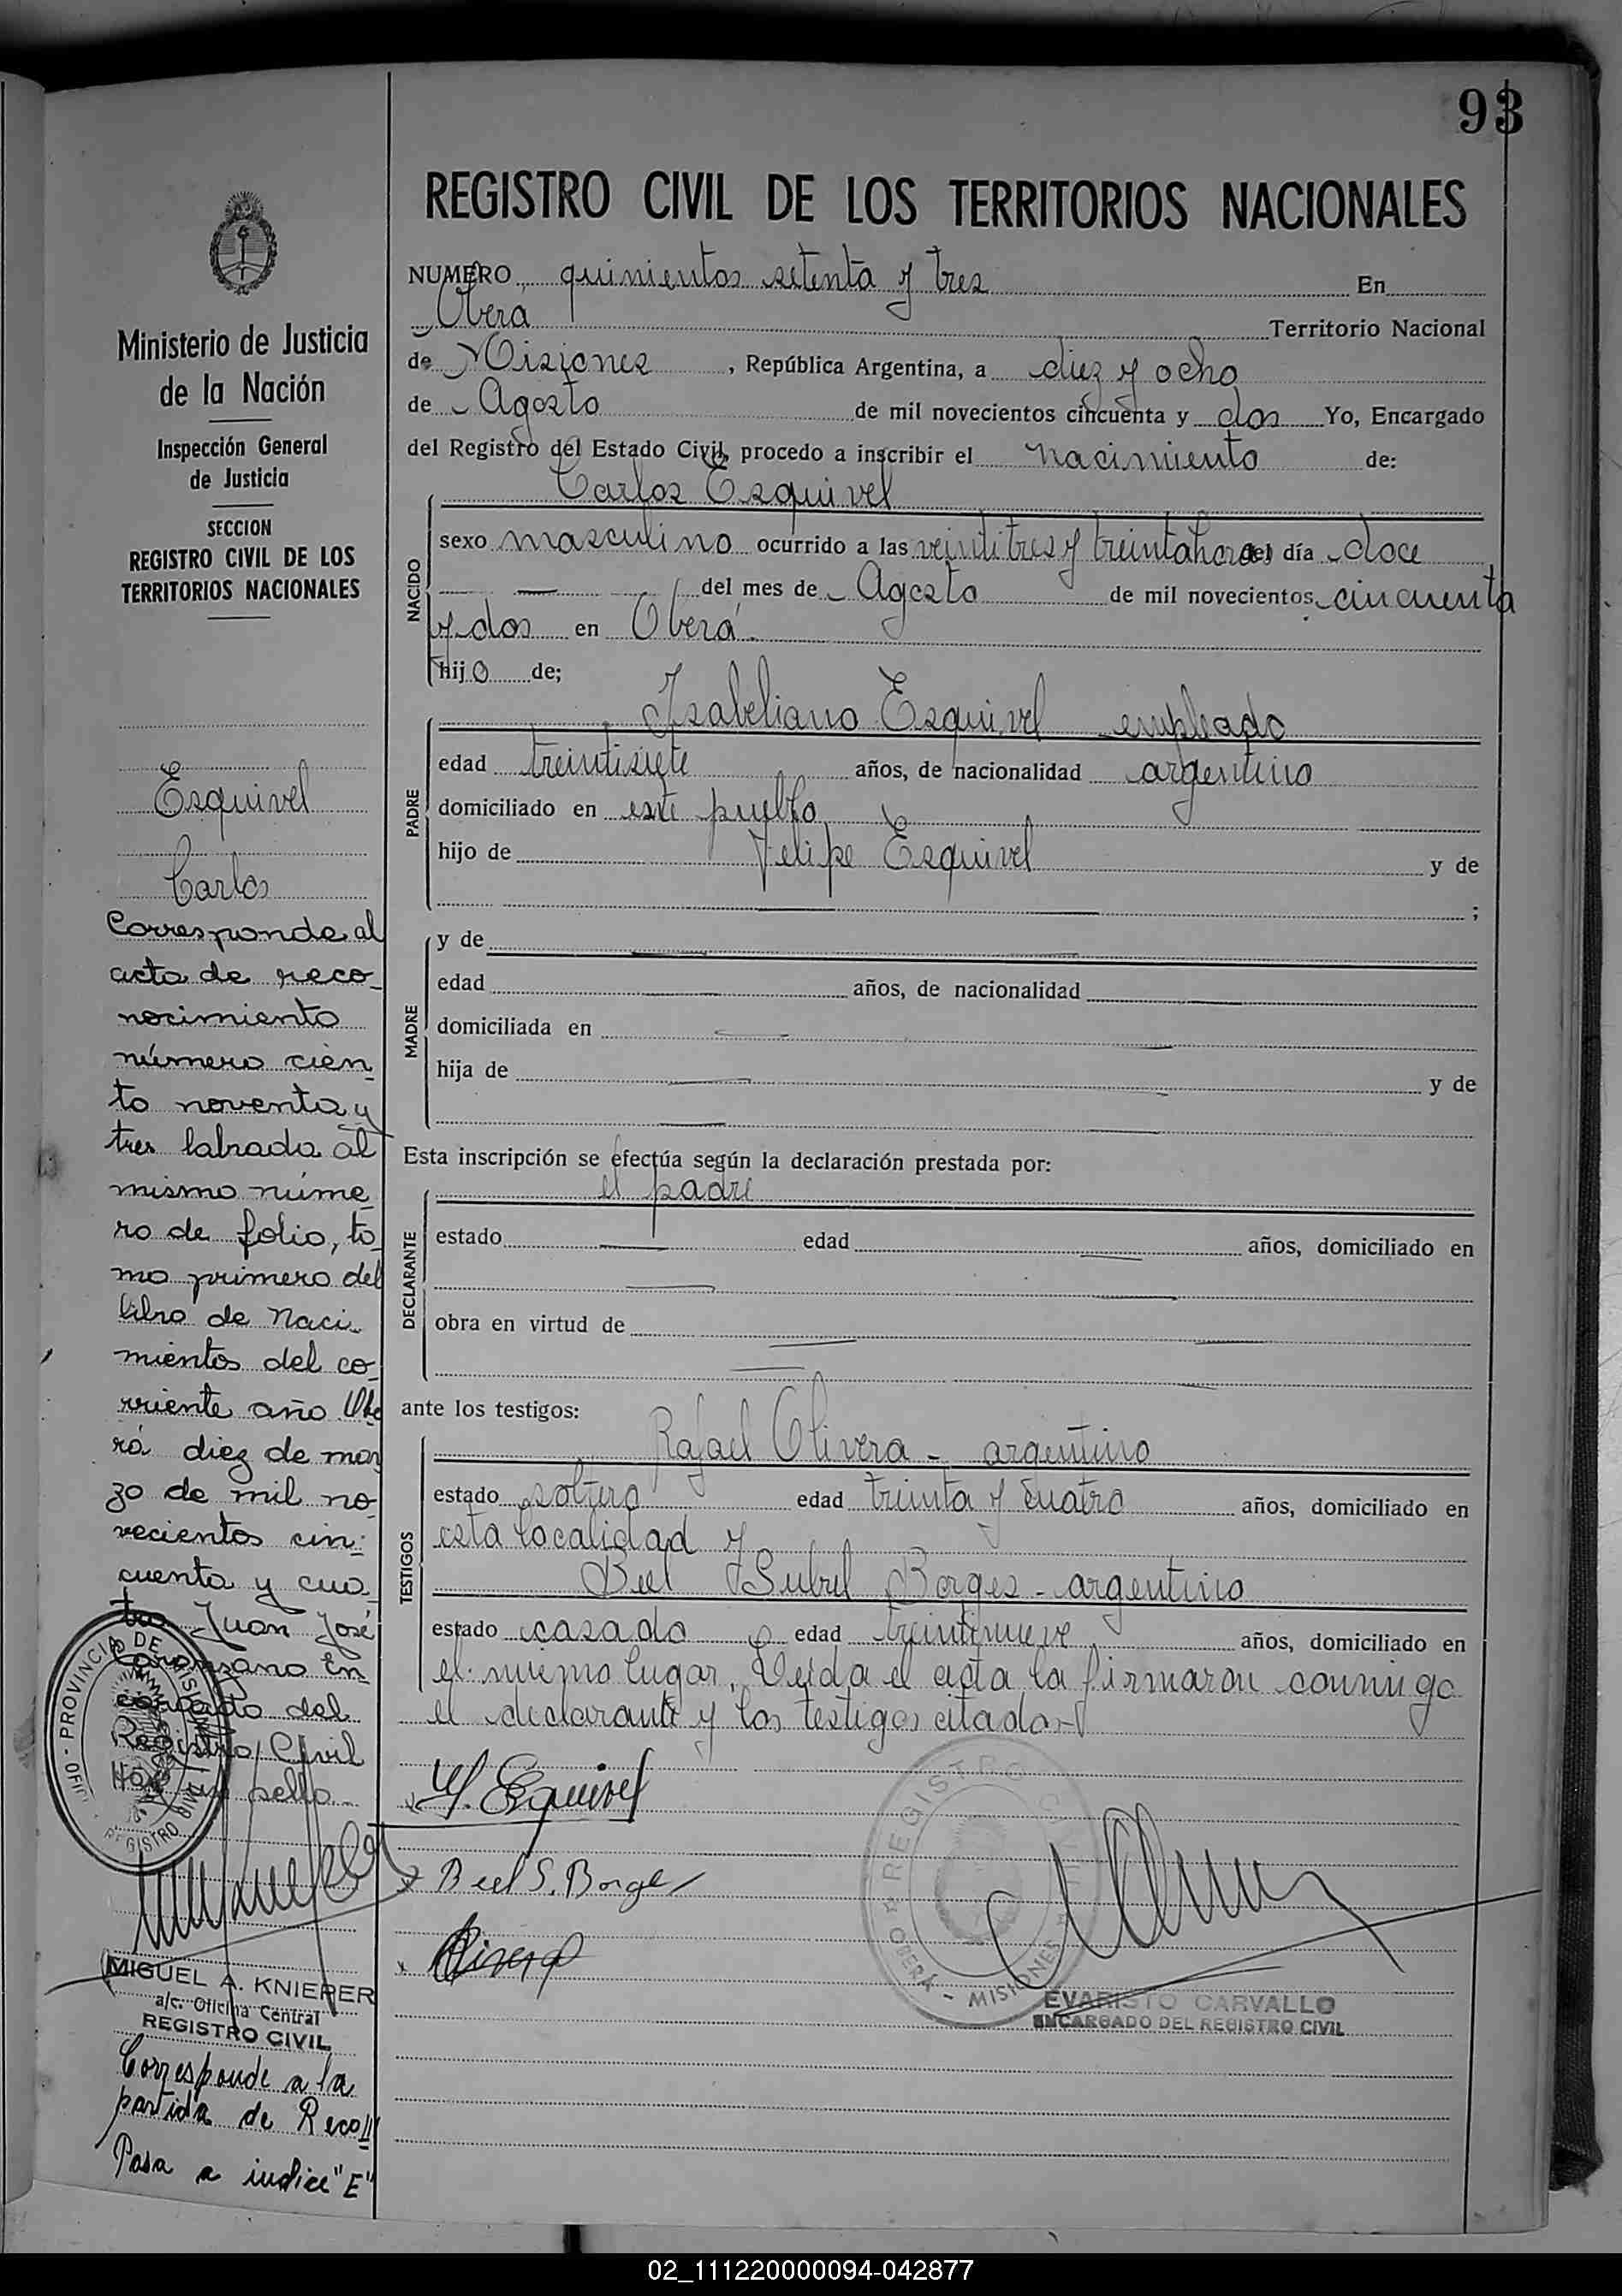 93
REGISTRO CIVIL DE LOS TERRITORIOS NACIONALES
Ministerio de Justicia
de la Nación
Inspección General
de Justicia
SECCION
REGISTRO CIVIL DE LOS
TERRITORIOS NACIONALES
Esquivel
Carlos
Corresponde al
acta de reco-
nocimiento
número cien-
to noventa y
tres labrada al
mismo núme-
ro de folio, to-
mo primero del
libro de Naci-
mientos del co-
rriente año Obe
rá diez de mar
zo de mil no-
vecientos cin-
cuenta y cua
tro Juan José
En
cargado del
Registro Civil
Hay un sello.-
PROVINCIA DE MISIONES
REGISTRO CIVIL
MIGUEL A. KNIEPER
a/c. Oficina Central
REGISTRO CIVIL
Corresponde a la
partida de Reco//
Pasa a indice "E"
NUMERO quinientos setenta y tres En
Obera Territorio Nacional
de Misiones, República Argentina, a diez y ocho
de Agosto de mil novecientos cincuenta y dos Yo, Encargado
del Registro del Estado Civil, procedo a inscribir el nacimiento de:
NACIDO
Carlos Esquivel
sexo masculino ocurrido a las veintitres y treinta horas del día doce
del mes de Agosto de mil novecientos cincuenta
y dos en Oberá.
hijo de;
PADRE
Isabeliano Esquivel empleado
edad treintisiete años, de nacionalidad argentino
domiciliado en este pueblo
hijo de Felipe Esquivel y de
;
MADRE
y de
edad años, de nacionalidad
domiciliada en
hija de y de
Esta inscripción se efectúa según la declaración prestada por:
DECLARANTE
el padre
estado edad años, domiciliado en
obra en virtud de
ante los testigos:
TESTIGOS
Rafael Olivera - argentino
estado soltero edad treinta y cuatro años, domiciliado en
esta localidad y
Beel Subel Borges - argentino
estado casado edad treintinueve años, domiciliado en
el mismo lugar. Leida el acta la firmaron conmigo
el declarante y los testigos citados.-
Y. Esquivel
Beel S. Borges
Olivera
REGISTRO CIVIL
OBERÁ - MISIONES
EVARISTO CARVALLO
ENCARGADO DEL REGISTRO CIVIL
02_111220000094-042877